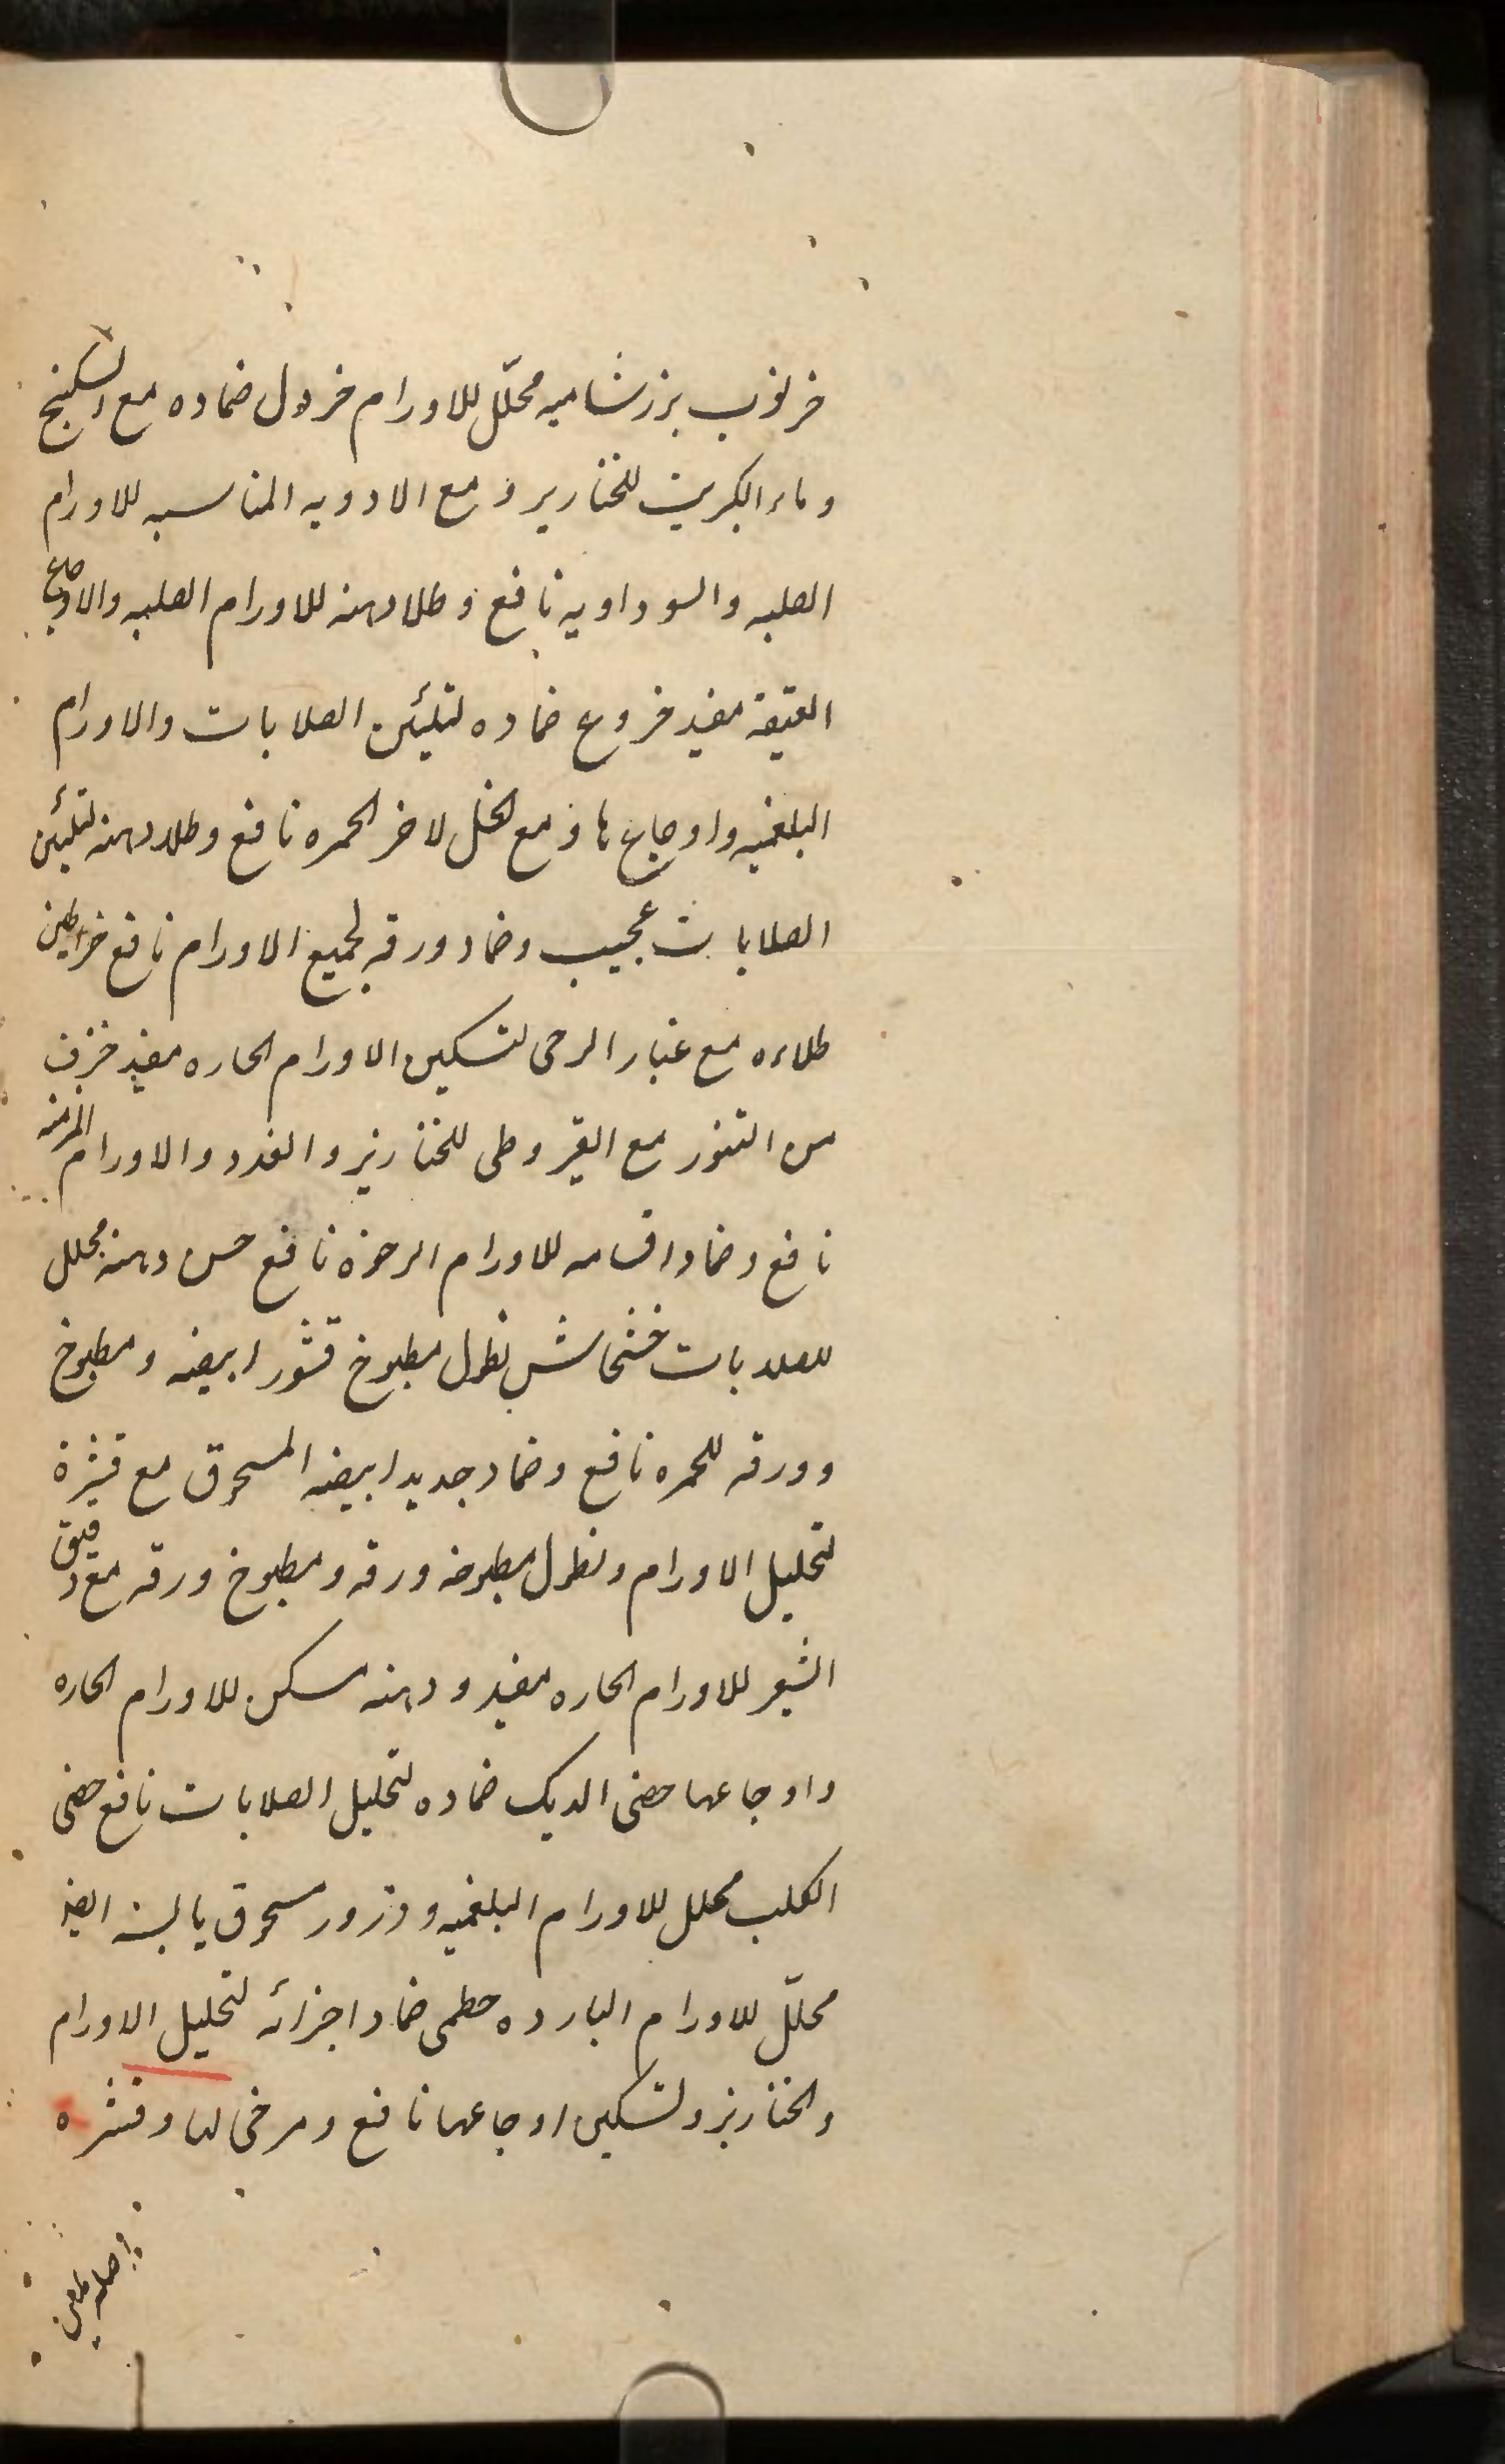 خرنوب بزر شاميه محلّل للاورام خردل ضماده مع السكبينج
وماء الكبريت للخنازير و مع الادويه المناسبه للاورام
الصلبه والسوداويه نافع و طلا دهنه للاورام الصلبه والاوجاع
العتيقه مفيد خروع ضماده لتليئن الصلابات والاورام
البلغميه واوجاع ها و مع الخل لاخر الحمره نافع و طلا دهنه لتليئن
الصلابات عجيب و ضماد ورقه لجميع الاورام نافع خراطين
طلاءه مع غبار الرحى لتسكين الاورام الحاره مفيد خزف
من التنور مع القيروطى للخنازير و الغدد و الاورام المزمنه
نافع و ضماد اقسامه للاورام الرخوة نافع خس دهنه محلل
للصلابات خشخاش نطول مطبوخ قشور ابيضه و مطبوخ
و ورقه للحمره نافع و ضماد جديد ابيضه المسحوق مع قشرة
لتحليل الاورام و نطول مطبوخه ورقه و مطبوخ ورقه مع دقيق
الشعير للاورام الحاره مفيد و دهنه مسكن للاورام الحاره
و اوجاعها خصى الديك ضماده لتحليل الصلابات نافع خصى
الكلب محلل للاورام البلغميه و ذرور مسحوق يابسه ايضا
محلّل للاورام البارده خطمى ضماد اجزائه لتحليل الاورام
والخنازير و لتسكين اوجاعها نافع و مرخى لها و قشره
اصله